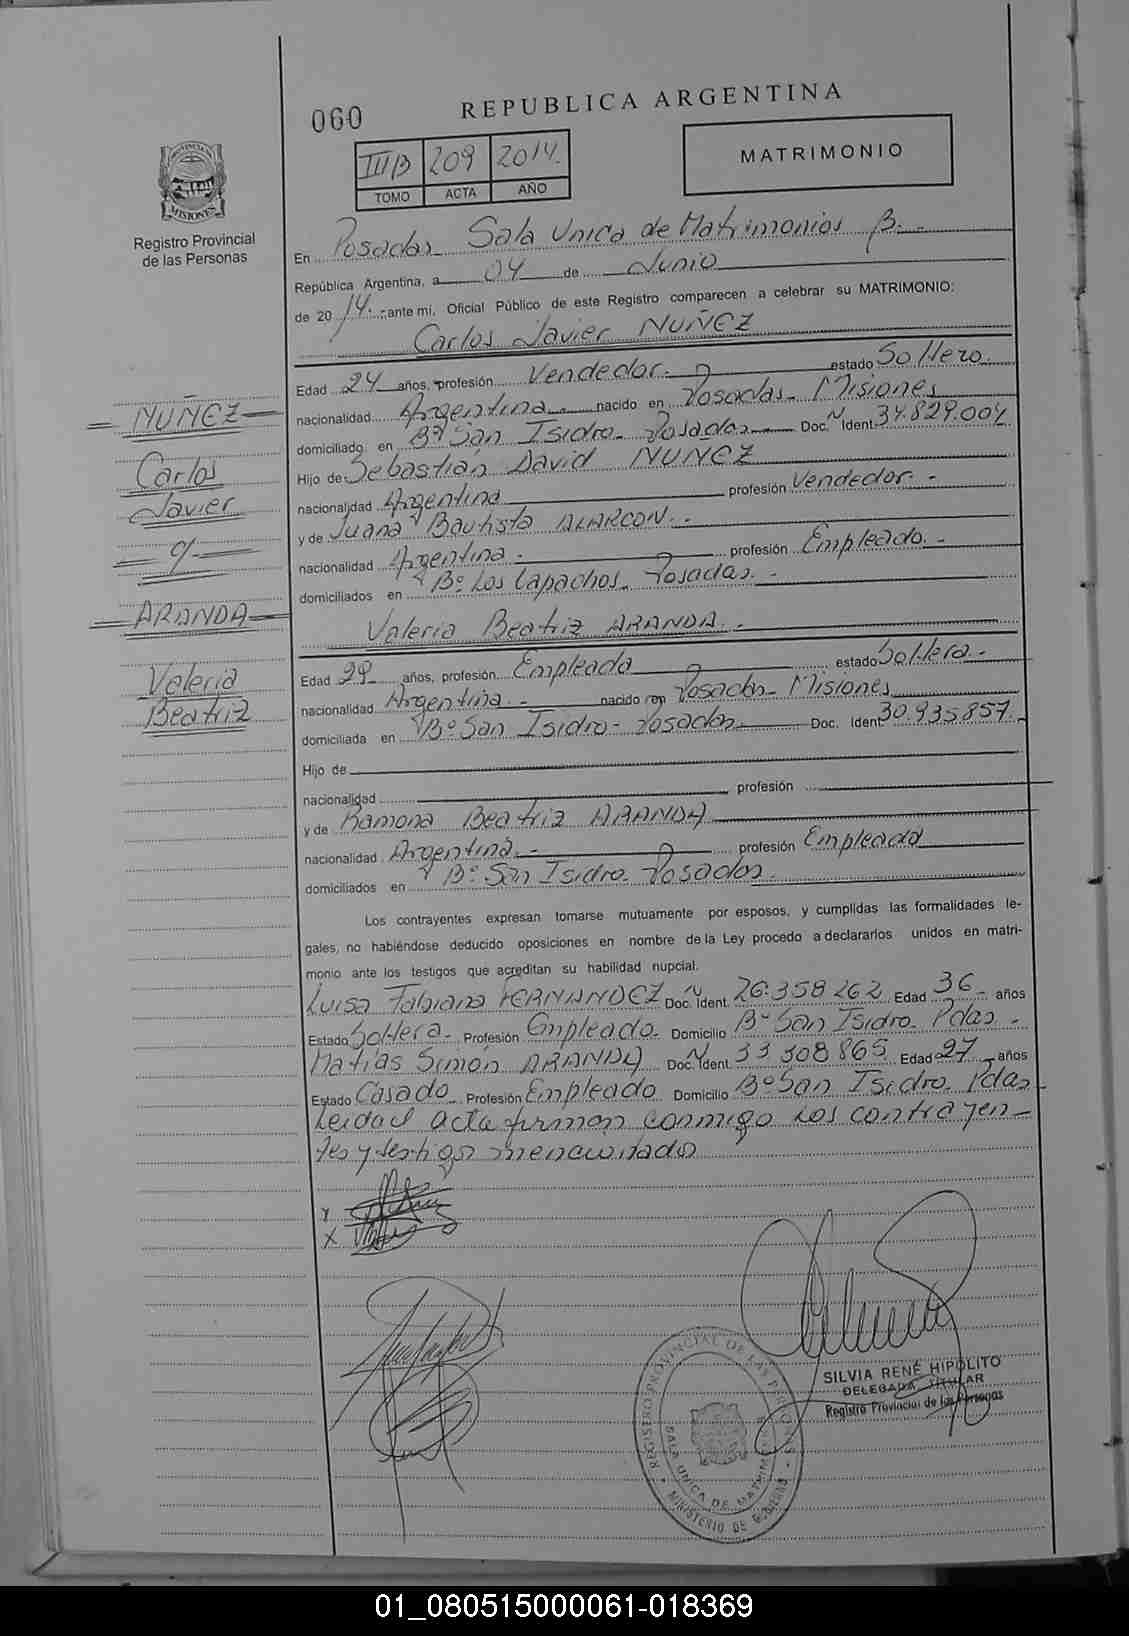 060
REPUBLICA ARGENTINA
III B 209 2014.
TOMO ACTA AÑO
MATRIMONIO
PROVINCIA
MISIONES
Registro Provincial
de las Personas
En Posadas Sala Unica de Matrimonios B. -
República Argentina, a 04 de Junio
de 2014.- ante mí, Oficial Público de este Registro comparecen a celebrar su MATRIMONIO:
Carlos Javier NUÑEZ
Edad 24 años, profesión Vendedor. estado Soltero.
nacionalidad Argentina.- nacido en Posadas- Misiones
domiciliado en Bº San Isidro- Posadas Doc. Ident. 34.829.004
Hijo de Sebastián David NUÑEZ
nacionalidad Argentina profesión Vendedor.-
y de Juana Bautista ALARCON.-
nacionalidad Argentina. profesión Empleado.-
domiciliados en Bº Los Lapachos- Posadas.-
Valeria Beatriz ARANDA.-
Edad 29 años, profesión Empleada estado Soltera.-
nacionalidad Argentina.- nacido en Posadas- Misiones
domiciliada en Bº San Isidro- Posadas Doc. Ident 30.935.857.
Hijo de
nacionalidad profesión
y de Ramona Beatriz ARANDA
nacionalidad Argentina.- profesión Empleada
domiciliados en Bº San Isidro- Posadas.
Los contrayentes expresan tomarse mutuamente por esposos, y cumplidas las formalidades le-
gales, no habiéndose deducido oposiciones en nombre de la Ley procedo a declararlos unidos en matri-
monio ante los testigos que acreditan su habilidad nupcial.
Luisa Fabiana FERNANDEZ Doc. Ident. 26.358 262 Edad 36 años
Estado Soltera- Profesión Empleado- Domicilio Bº San Isidro- Pdas.-
Matías Simón ARANDA Doc. Ident. 33 308 865 Edad 27 años
Estado Casado Profesión Empleado Domicilio Bº San Isidro- Pdas
Leida el acta firman conmigo los contrayen-
tes y testigos mencionados
NUÑEZ
Carlos
Javier
y
ARANDA
Valeria
Beatriz
X
SILVIA RENÉ HIPOLITO
DELEGADA TITULAR
Registro Provincial de las Personas
REGISTRO PROVINCIAL DE LAS PERSONAS
SALA UNICA DE MATRIMONIOS
MINISTERIO DE GOBIERNO
01_080515000061-018369